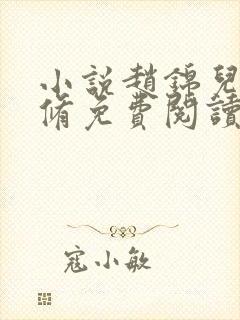 小說趙錦兒
脩免費閱讀
寇小敏